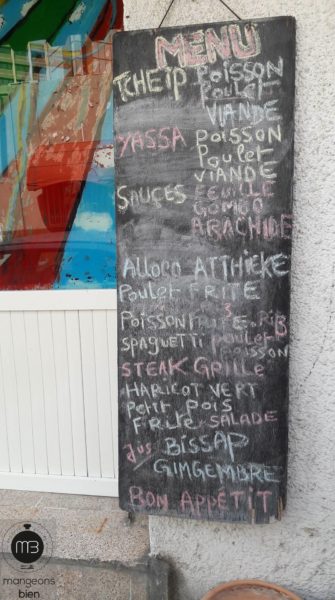 MENU
TCHEIP POISSON
Poulet
VIANDE
YASSA POISSON
Poulet
VIANDE
SAUCES FEUILLE
GOMBO
ARACHIDE
Alloco ATTHIEKE
Poulet FRITE
POISSON FRITE RiB
SPAGHETTI poulet
POISSON
STEAK GRILLE
HARICOT VERT
Petit Pois
FRite SALADE
Jus BISSAP
GIMGEMBRE
BON APPETIT
MB
mangeons
bien